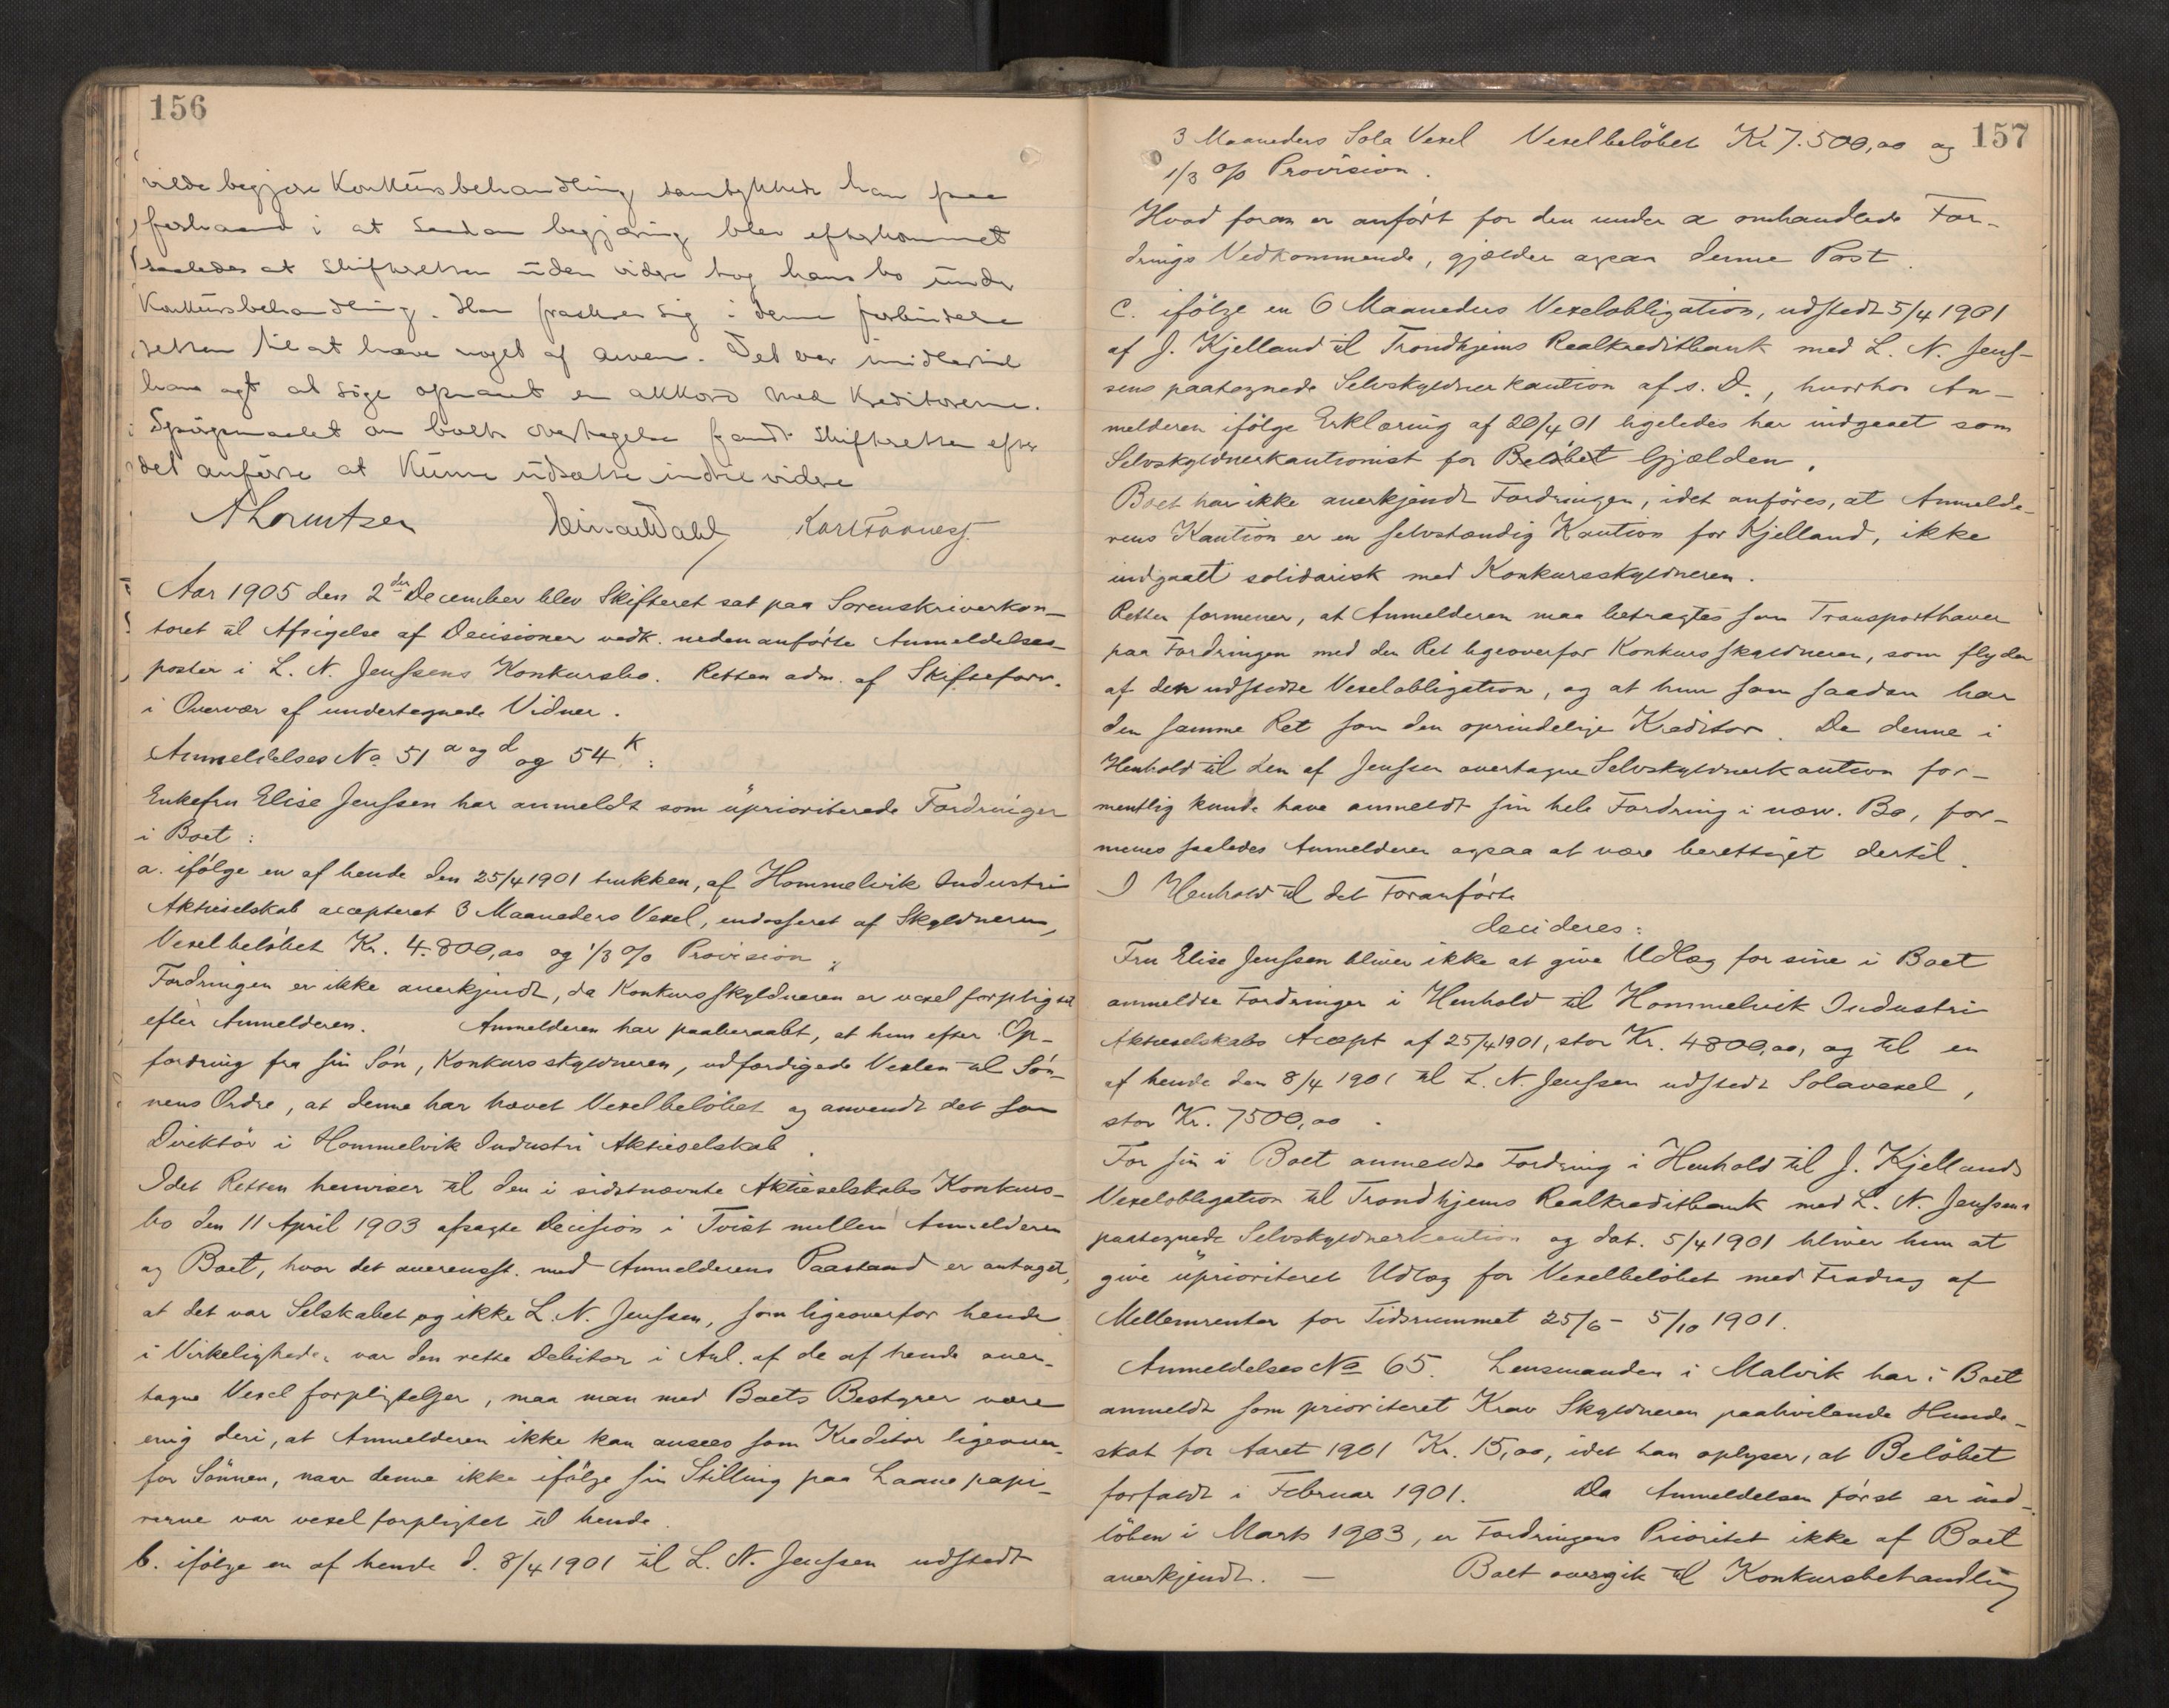 156
vilde begjære Konkursbehandling samtykkede han paa
forhaand i at saadan begjæring blev efterkommet
saaledes at skifteretten uden videre tog hans bo under
Konkursbehandling. Han fraskrev sig i denne forbindelse
retten til at have noget af arven. Det var imidlertid
hans agt at søge opnaaet en akkord med Kreditorerne.
Spørgsmaalet om boets overtagelse fandt skifteretten efter
det anførte at kunne udsætte indtil videre
A Lorentzen Einar Dahl Karl Faaness.
Aar 1905 den 2den December blev Skifteret sat paa Sorenskriverkon-
toret til Afsigelse af Decisioner vedk. nedenanførte Anmeldelses-
poster i L. N. Jenssens Konkursbo. Retten adm. af Skifteforv.
i Overvær af undertegnede Vidner.
Anmeldelses No 51 a og d og 54 k:
Enkefru Elise Jenssen har anmeldt som uprioriterede Fordringer
i Boet:
a. ifølge en af hende den 25/4 1901 trukken, af Hommelvik Industri
Aktieselskab accepteret 3 Maaneders Vexel, endosseret af Skyldneren,
Vexelbeløbet Kr. 4.800,00 og 1/3 % Provision.
Fordringen er ikke anerkjendt, da Konkursskyldneren er vexelforpligtet
efter Anmelderen. Anmelderen har paaberaabt, at hun efter Op-
fordring fra sin Søn, Konkursskyldneren, udfærdigede Vexlen til Søn-
nens Ordre, at denne har hævet Vexelbeløbet og anvendt det som
Direktør i Hommelvik Industri Aktieselskab.
Idet Retten henviser til den i sidstnævnte Aktieselskabs Konkurs-
bo den 11 April 1903 afsagte Decision i Tvist mellem Anmelderen
og Boet, hvor det overensst. med Anmelderens Paastand er antaget,
at det var Selskabet og ikke L. N. Jenssen, som ligeoverfor hende
i Virkeligheden var den rette Debitor i Anl. af de af hende over-
tagne Vexelforpligtelser, maa man med Boets Bestyrer være
enig deri, at Anmelderen ikke kan ansees som Kreditor ligeover-
for Sønnen, naar denne ikke ifølge sin Stilling paa Laanepapi-
rerne var vexelforpligtet til hende.
b. ifølge en af hende d. 8/4 1901 til L. N. Jenssen udstedt
157
3 Maaneders Sola Vexel Vexelbeløbet Kr 7.500,00 og
1/3 % Provision.
Hvad foran er anført for den under a omhandlede For-
drings Vedkommende, gjælder ogsaa denne Post.
c. ifølge en 6 Maaneders Vexelobligation, udstedt 5/4 1901
af J. Kjelland til Trondhjems Realkreditbank med L. N. Jens-
sens paategnede Selvskyldnerkaution af s. D., hvorhos An-
melderen ifølge Erklæring af 20/4 01 ligeledes har indgaaet som
Selvskyldnerkautionist for Beløbet Gjælden.
Boet har ikke anerkjendt Fordringen, idet anføres, at Anmelde-
rens Kaution er en selvstændig Kaution for Kjelland, ikke
indgaaet solidarisk med Konkursskyldneren.
Retten formener, at Anmelderen maa betragtes som Transporthaver
paa Fordringen med den Ret ligeoverfor Konkursskyldneren, som flyder
af den udstedte Vexelobligation, og at hun som saadan har
den samme Ret som den oprindelige Kreditor. Da denne i
Henhold til den af Jenssen overtagne Selvskyldnerkaution for-
mentlig kunde have anmeldt sin hele Fordring i nærv. Bo, for-
menes saaledes Anmelderen ogsaa at være berettiget dertil.
I Henhold til det Foranførte
decideres:
Fru Elise Jenssen bliver ikke at give Udlæg for sine i Boet
anmeldte Fordringer i Henhold til Hommelvik Industri
Aktieselskabs Accept af 25/4 1901, stor Kr. 4800,00, og til en
af hende den 8/4 1901 til L. N. Jenssen udstedt Solavexel,
stor Kr. 7500,00.
For sin i Boet anmeldte Fordring i Henhold til J. Kjellands
Vexelobligation til Trondhjems Realkreditbank med L. N. Jenssens
paategnede Selvskyldnerkaution og dat. 5/4 1901 bliver hun at
give uprioriteret Udlæg for Vexelbeløbet med Fradrag af
Mellemrenter for Tidsrummet 25/6 - 5/10 1901.
Anmeldelses No 65. Lensmanden i Malvik har i Boet
anmeldt som prioriteret Krav Skyldneren paahvilende Hunde-
skat for Aaret 1901 Kr. 15,00, idet han oplyser, at Beløbet
forfaldt i Februar 1901. Da Anmeldelsen først er ind-
løben i Marts 1903, er Fordringens Prioritet ikke af Boet
anerkjendt. — Boet overgik til Konkursbehandling